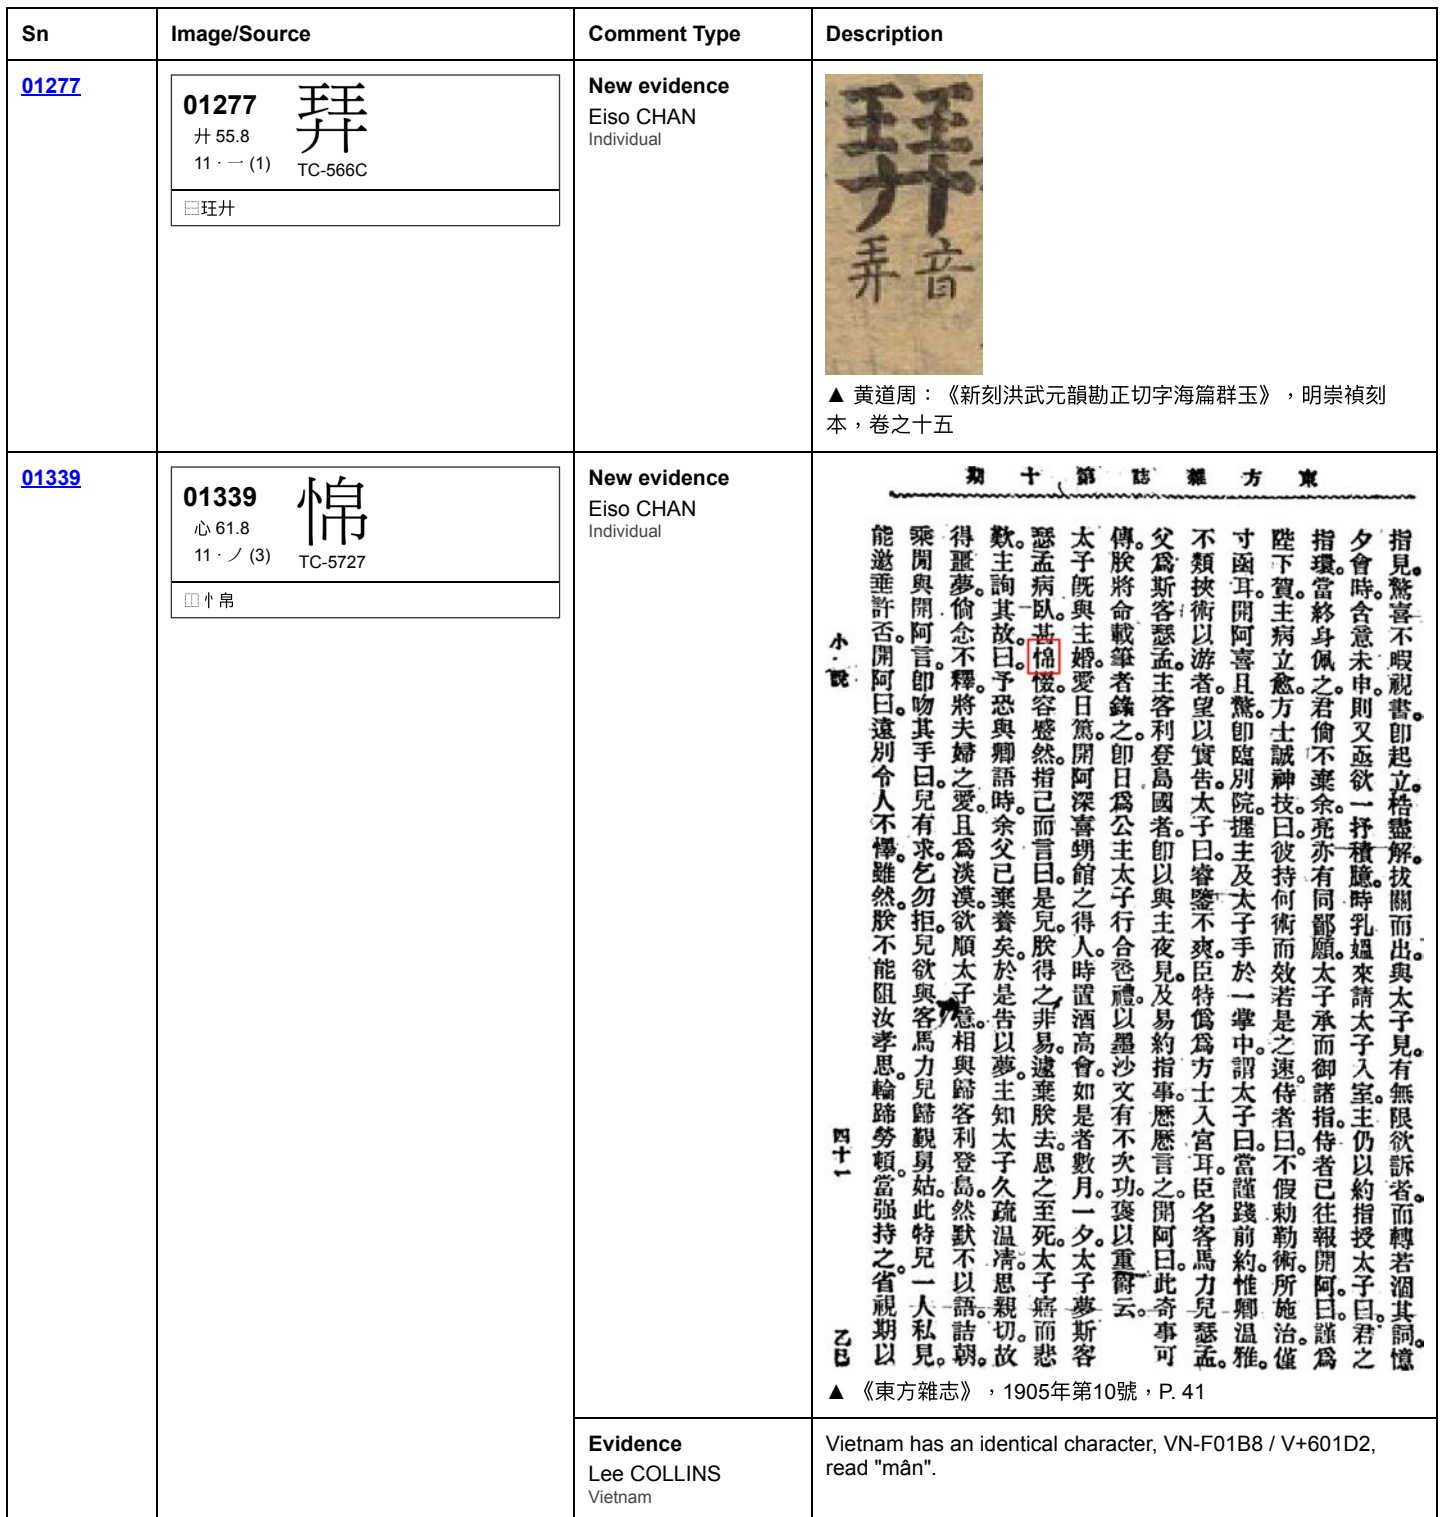 Sn Image/Source Comment Type Description
01277
01277
廾 55.8
11 · 一 (1)
TC-566C
⿱玨廾
New evidence
Eiso CHAN
Individual
音弄
▲ 黄道周：《新刻洪武元韻勘正切字海篇群玉》，明崇禎刻
本，卷之十五
01339
01339
心 61.8
11 · ノ (3)
TC-5727
⿰忄帛
New evidence
Eiso CHAN
Individual
東方雜誌第十期
指見。驚喜不暇視書。卽起立。梏盡解。拔關而出。與太子見。有無限欲訴者。而轉若涸其詞。憶
夕會時。含意未申。則又亟欲一抒積臆。時乳媼來請太子入室。主仍以約指授太子曰。君之
指環。當終身佩之。君倘不棄余。亮亦有同鄙願。太子承而御諸指。侍者已往報開阿。曰。謹爲
陛下賀。主病立愈。方士誠神技。曰。彼持何術而效若是之速。侍者曰。不假勅勒術。所施治。僅
寸函耳。開阿喜且驚。卽臨別院。握主及太子手於一掌中。謂太子曰。當謹踐前約。惟卿溫雅。
不類挾術以游者。望以實告。太子曰。睿鑒不爽。臣特僞爲方士入宮耳。臣名客馬力兒瑟孟。
父爲斯客瑟孟。主客利登島國者。卽以與主夜見。及易約指事。歷歷言之。開阿曰。此奇事可
傳。朕將命載筆者錄之。卽日爲公主太子行合巹禮。以墨沙文有不次功。褒以重爵云。
太子旣與主婚。愛日篤。開阿深喜甥館之得人。時置酒高會。如是者數月。一夕。太子夢斯客
瑟孟病臥。甚惙。容蹙然。指己而言曰。是兒。朕得之非易。遽棄朕去。思之至死。太子寤而悲
歎。主詢其故。曰。予恐與卿語時。余父已棄養矣。於是告以夢。主知太子久疏溫凊。思親切。故
得噩夢。倘念不釋。將夫婦之愛。且爲淡漠。欲順太子意。相與歸客利登島。然默不以語。詰朝。
乘閒與開阿言。卽吻其手曰。兒有求。乞勿拒。兒欲與客馬力兒歸覲舅姑。此特兒一人私見。
能邀垂許否。開阿曰。遠別令人不懌。雖然。朕不能阻汝孝思。輪蹄勞頓。當强持之。省視期以
小說 四十一 乙巳
▲ 《東方雜志》，1905年第10號，P. 41
Evidence
Lee COLLINS
Vietnam
Vietnam has an identical character, VN-F01B8 / V+601D2,
read "mân".